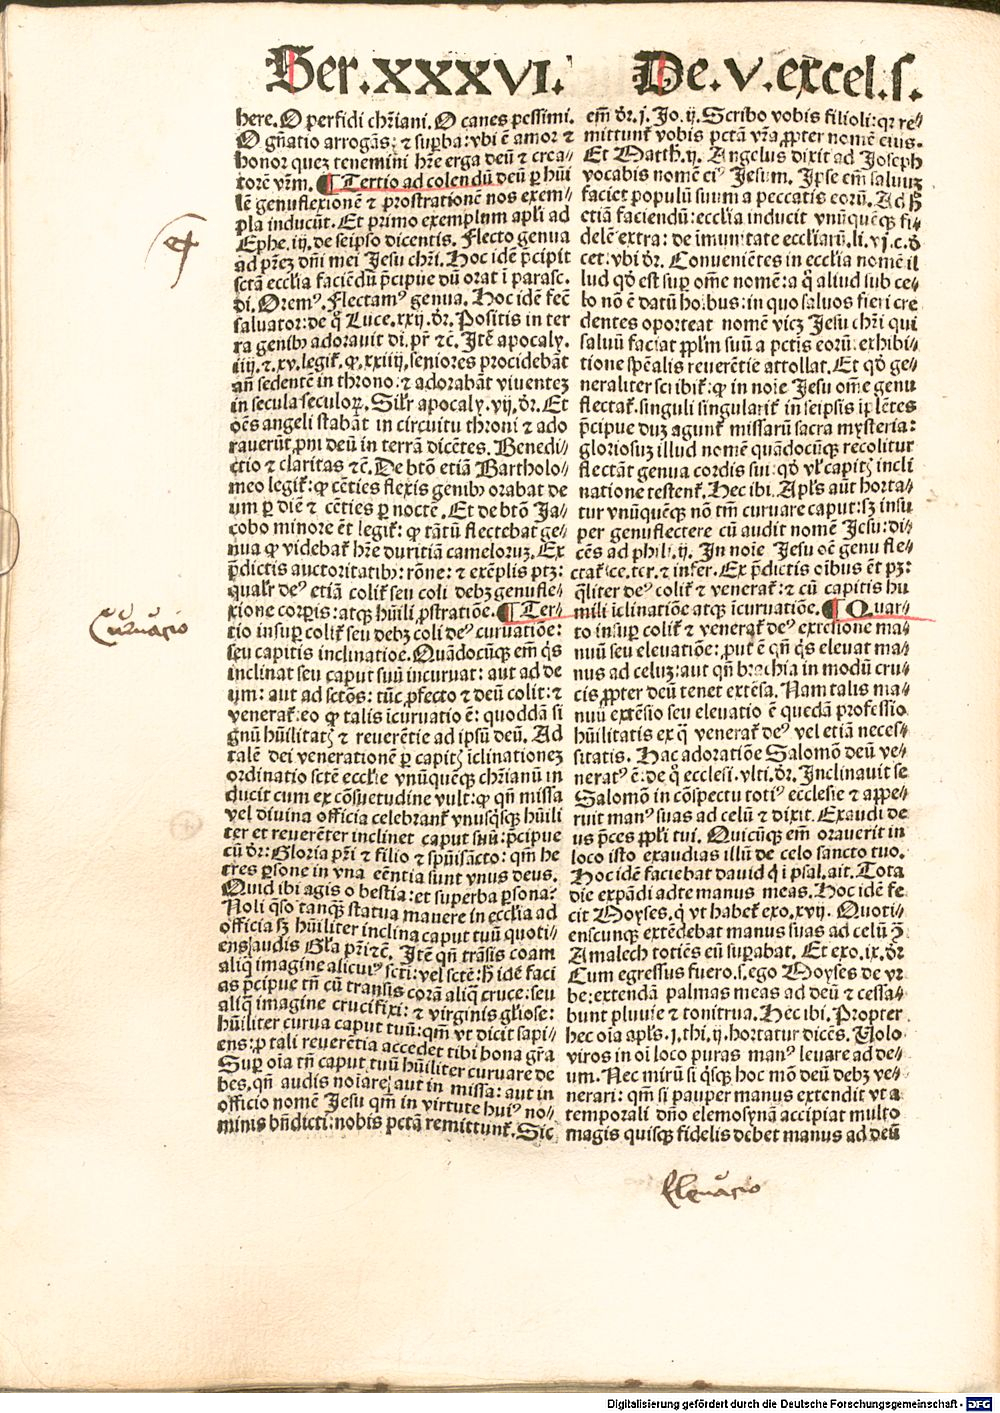 Ser.XXXVI. De.V.excel.s.
here. O perfidi chr̄iani. O canes pessimi.
O gn̄atio arrogās: ⁊ suꝑba: vbi ē amor ⁊
honor quez tenemini hr̄e erga deū ⁊ crea⸗
torē vr̄m. ¶ Tertio ad colendū deū ꝑ hūi
lē genuflexionē ⁊ prostrationē nos exem⸗
pla inducūt. Et primo exemplum apl̄i ad
Ephe.iij. de seipso dicentis. Flecto genua
ad pr̄ez dn̄i mei Jesu chr̄i. Hoc idē p̄cipit
sctā eccl̄ia faciēdū p̄cipue dū orat ī parasc.
di. Oremꝰ. Flectamꝰ genua. Hoc idē fecē
saluator: de qͦ Luce.xxij. dr̄. Positis in ter
ra genibꝫ adorauit di. pr̄ ⁊c̄. Jtē apocaly.
iiij. ⁊ xv. legit̄. ꝙ. xxiiij. seniores procidebāt
an̄ sedentē in throno: ⁊ adorabāt viuentez
in secula seculoꝝ. Silr̄ apocaly.vij. dr̄. Et
oēs angeli stabāt in circuitu throni ⁊ ado
rauerūt ꝓni deū in terrā dicētes. Benedi⸗
ctio ⁊ claritas ⁊c̄. De btō etiā Bartholo⸗
meo legit̄: ꝙ cēties flexis genibꝫ orabat de
um ꝑ diē ⁊ cēties ꝑ noctē. Et de btō Ja⸗
cobo minore ēt legit̄: ꝙ tātū flectebat ge⸗
nua ꝙ videbat̄ hr̄e duritiā cameloruz. Ex
p̄dictis auctoritatibꝫ: rōne: ⁊ exēplis ptꝫ:
qualr̄ deꝰ etiā colit̄ seu coli debꝫ genufle⸗
xione corꝑis: atqꝫ hūili ꝓstratiōe. ¶ Ter⸗
tio insuꝑ colit̄ seu debꝫ coli deꝰ curuatiōe:
seu capitis inclinatioe. Quādocūqꝫ em̄ qͥs
inclinat seu caput suū incuruat: aut ad de
um: aut ad sctōs: tūc ꝓfecto ⁊ deū colit: ⁊
venerat̄: eo ꝙ talis īcuruatio ē: quoddā si
gnū hūilitatꝭ ⁊ reuerētie ad ipsū deū. Ad
talē dei venerationē ꝑ capitꝭ īclinationez
ordinatio sctē eccl̄ie vnūquēqꝫ chr̄ianū in
ducit cum ex cōsuetudine vult: ꝙ qn̄ missa
vel diuina officia celebrant̄ vnusqͥsqꝫ hūili
ter et reuerēter inclinet caput suū: p̄cipue
cū dr̄: Gloria pr̄i ⁊ filio ⁊ spūisācto: qm̄ he
tres ꝑsone in vna eēntia sunt vnus deus.
Quid ibi agis o bestia: et superba ꝑsona?
Noli qͣso tanqͣꝫ statua manere in eccl̄ia ad
officia sꝫ hūiliter inclina caput tuū quoti⸗
ens audis Gl̄a pr̄i ⁊c̄. Jtē qn̄ trāsis coram
aliqͣ imagine alicuiꝰ scti: vel sctē: hͦ idē faci
as p̄cipue tn̄ cū transis corā aliqͣ cruce: seu
aliqͣ imagine crucifixi: ⁊ virginis gl̄iose:
hūiliter curua caput tuū: qm̄ vt dicit sapi⸗
ens: ꝑ tali reuerētia accedet tibi bona gr̄a
Suꝑ oīa tn̄ caput tuū hūiliter curuare de
bes, qn̄ audis noīare: aut in missa: aut in
officio nomē Jesu qm̄ in virtute huiꝰ no⸗
minis bn̄dicti: nobis pctā remittunt̄. Sic
em̄ dr̄.j. Jo.ij. Scribo vobis filioli: qꝛ re⸗
mittunt̄ vobis pctā vr̄a ꝓpter nomē eius.
Et Matth.ij. Angelus dixit ad Joseph
vocabis nomē eiꝰ Jesum. Jpse em̄ saluuz
faciet populū suum a peccatis eorū. Ad hͦ
etiā faciendū: eccl̄ia inducit vnūquēqꝫ fi⸗
delē extra: de īmunitate eccl̄iarū. li.vj. c. dͦ
cet: vbi dr̄. Conueniētes in eccl̄ia nomē il
lud qͦd est suꝑ om̄e nomē: a qͦ aliud sub ce⸗
lo nō ē datū hoībus: in quo saluos fieri cre
dentes oporteat nomē vicꝫ Jesu chr̄i qui
saluū faciat ppl̄m suū a pctis eorū: exhibi⸗
tione spēalis reuerētie attollat. Et qͦd ge⸗
neraliter scribit̄: ꝙ in noīe Jesu om̄e genu
flectat̄. singuli singularit̄ in̄ seipsis īplētes
p̄cipue duꝫ agunt̄ missarū sacra mysteria:
gloriosuꝫ illud nomē quādocūqꝫ recolitur
flectāt genua cordis sui: qͦd vl̄ capitꝭ incli
natione testent̄. Hec ibi. Apl̄s aūt horta⸗
tur vnūquēqꝫ nō tm̄ curuare caput: sꝫ insu
per genuflectere cū audit nomē Jesu: di⸗
cēs ad phili.ij. Jn noīe Jesu oē genu fle⸗
ctat̄ ce. ter. ⁊ infer. Ex p̄dictis oībus ēt pꝫ:
qͣliter deꝰ colit̄ ⁊ venerat̄: ⁊ cū capitis hu
mili īclinatiōe atqꝫ īcuruatiōe. ¶ Quar⸗
to insuꝑ colit̄ ⁊ venerat̄ deꝰ extēsione ma⸗
nuū seu eleuatiōe: put ē qn̄ qͥs eleuat ma⸗
nus ad celuꝫ: aut qn̄ brachia in modū cru⸗
cis ꝓpter deū tenet extēsa. Nam talis ma⸗
nuū extēsio seu eleuatio ē quedā professio
hūilitatis ex qͣ venerat̄ deꝰ vel etiā neces⸗
sitatis. Hac adoratiōe Salomō deū ve⸗
neratꝰ ē: de qͦ ecclesi. vlti. dr̄. Jnclinauit se
Salomō in cōspectu totiꝰ ecclesie ⁊ appe⸗
ruit manꝰ suas ad celū ⁊ dixit. Exaudi de
us p̄ces ppl̄i tui. Quicūqꝫ em̄ orauerit in
loco isto exaudias illū de celo sancto tuo.
Hoc idē faciebat dauid qͥ i psal. ait. Tota
die expādi ad te manus meas. Hoc idē fe⸗
cit Moyses. qͥ vt habet̄ exo.xvij. Quoti⸗
enscunqꝫ extēdebat manus suas ad celū ꝯ̄
Amalech totiēs eū suꝑabat. Et exo.ix. dr̄
Cum egressus fuero.s. ego Moyses de vr
be: extendā palmas meas ad deū ⁊ cessa⸗
bunt pluuie ⁊ tonitrua. Hec ibi. Propter
hec oīa apl̄s.j. thi.ij. hortatur dicēs. Uolo
viros in oī loco puras manꝰ leuare ad de⸗
um. Nec mirū si qͥsqꝫ hoc mō deū debꝫ ve⸗
nerari: qm̄ si pauper manus extendit vt a
temporali dn̄o elemosynā accipiat multo
magis quisqꝫ fidelis debet manus ad deū
Curuacio
Eleuacio
Digitalisierung gefördert durch die Deutsche Forschungsgemeinschaft - DFG